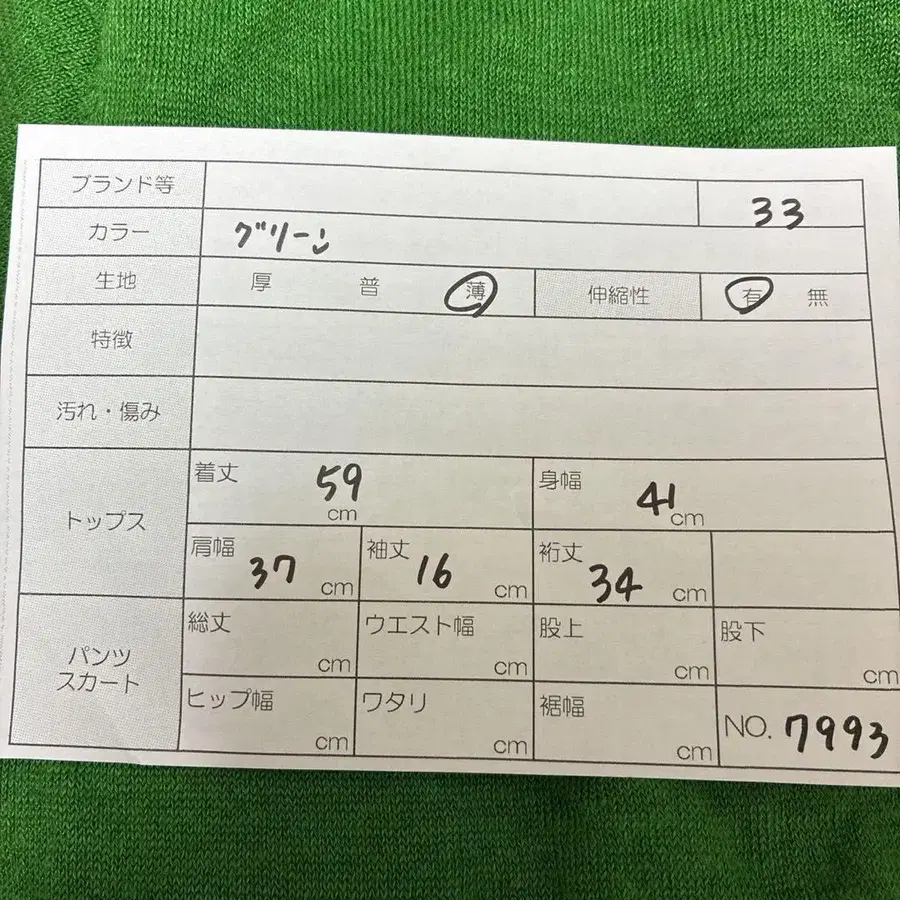 ブランド等 33
カラー グリーン
生地 厚 普 薄 伸縮性 有 無
特徴
汚れ・傷み
トップス
着丈 59 cm 身幅 41 cm
肩幅 37 cm 袖丈 16 cm 裄丈 34 cm
パンツ
スカート
総丈 cm ウエスト幅 cm 股上 cm 股下 cm
ヒップ幅 cm ワタリ cm 裾幅 cm NO. 7993